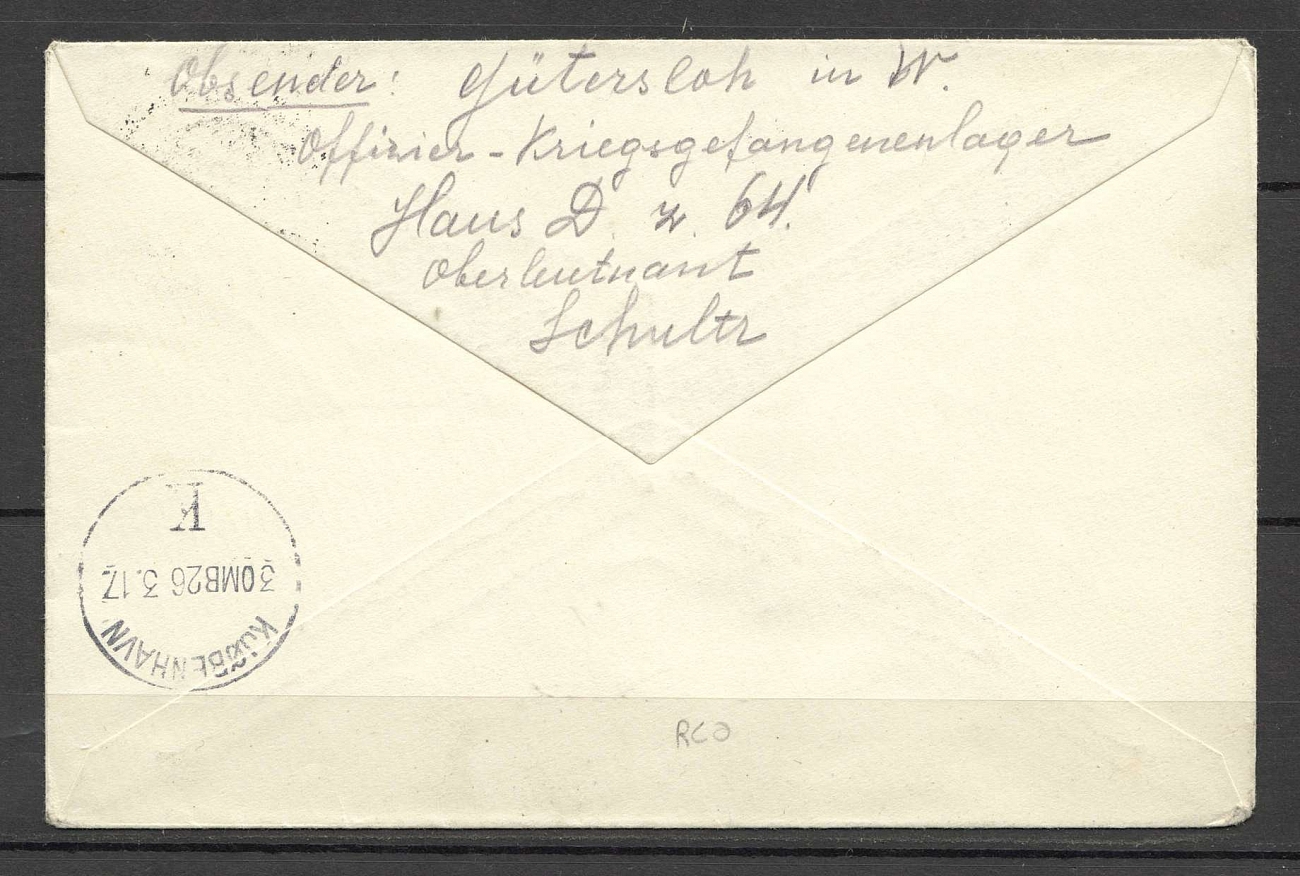 Obsender: Gütersloh in W.
Offizier-Kriegsgefangenenlager
Haus D. z. 64.
Oberleutnant
Schultz
K
3OMB26 3.17
KJØBENHAVN
RCO